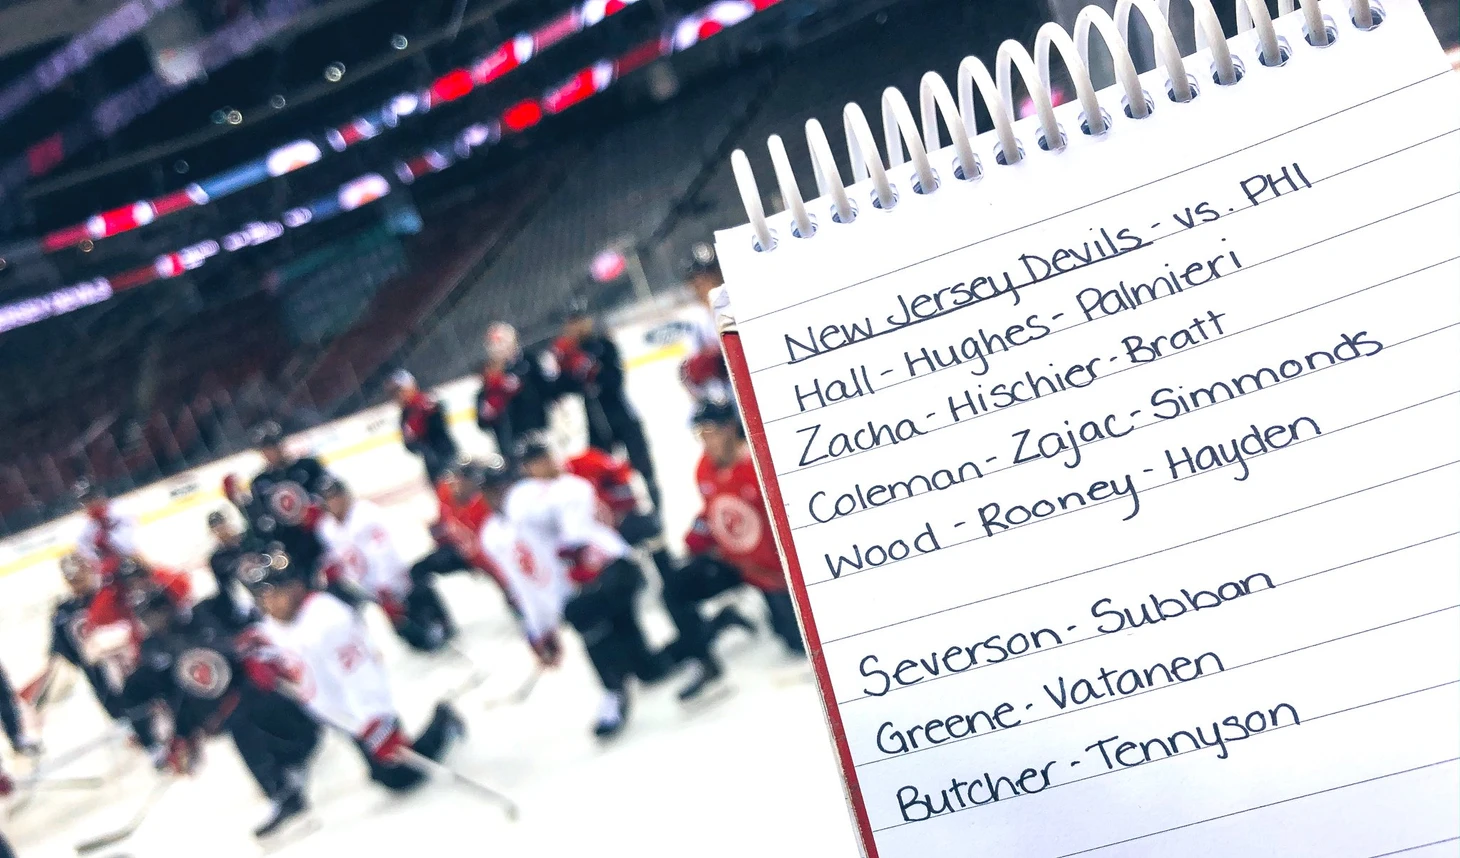 New Jersey Devils - vs. PHI
Hall - Hughes - Palmieri
Zacha - Hischier - Bratt
Coleman - Zajac - Simmonds
Wood - Rooney - Hayden
Severson - Subban
Greene - Vatanen
Butcher - Tennyson